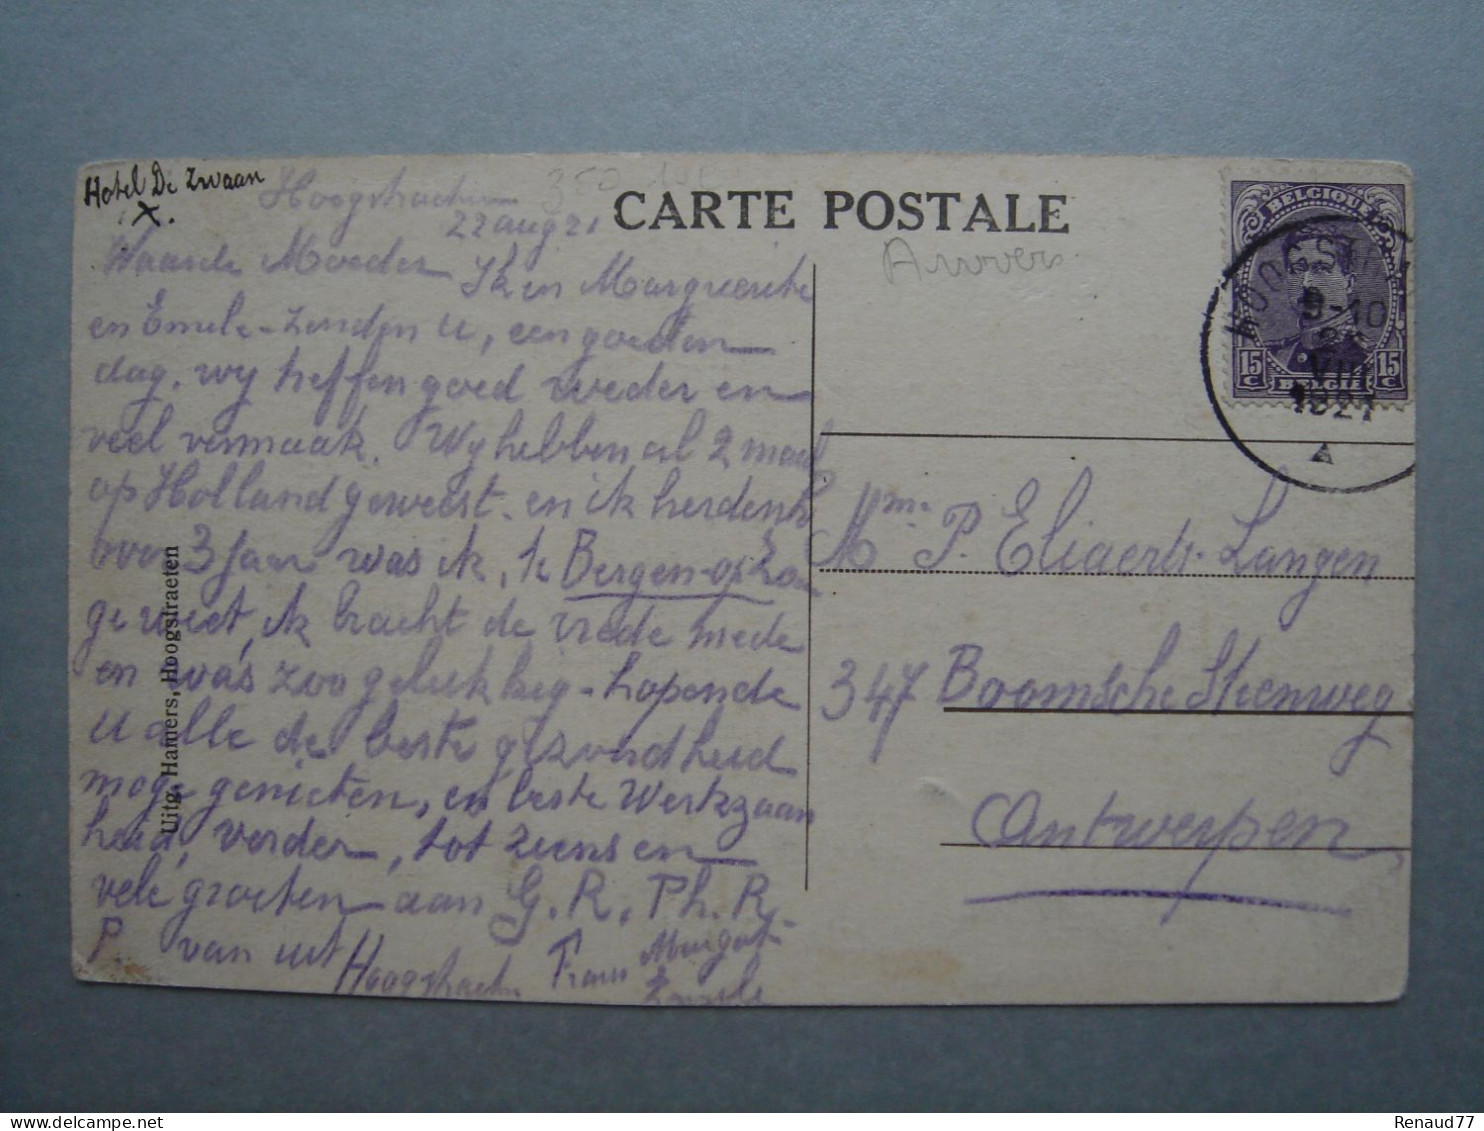 Hotel De Zwaan
X.
Hoogstraeten
22 aug 21
CARTE POSTALE
Anvers
Waarde Moeder Ik en Marguerite
en Emile - zenden U, een goeden
dag. wy treffen goed weder en
veel vermaak. Wy hebben al 2 maal
op Holland geweest. en ik herdenk
over 3 jaar was ik, te Bergen-op-Zoom
geweest, ik bracht de vrede mede
en was zoo gelukkig - hopende
U alle de beste gezondheid
moge genieten, en beste Werkzaam
heid, verder, tot ziens en
vele groeten aan G. R. Ph. R.
P. van uit Hoogstraeten Frans Margot
Emile
Uitg. Hamers, Hoogstraeten
BELGIQUE
15 C
15 C
BELGIË
9-10
VIII
1921
Mme P. Eliaerts-Langen
347 Boomsche Steenweg
Antwerpen
Renaud77